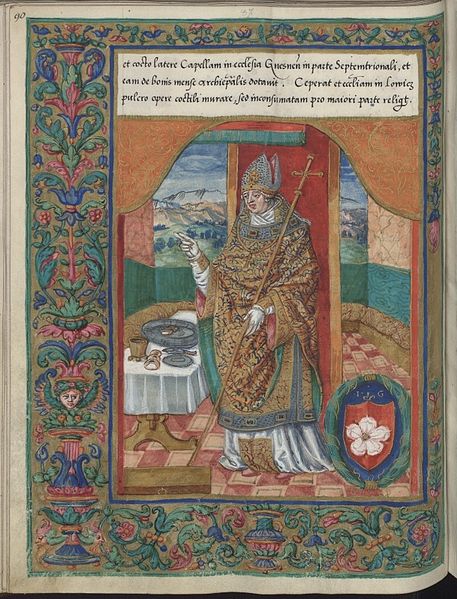 90
37
et cocto latere Capellam in ecclesia Gnesnen̄ in parte Septemtrionali, et
eam de bonis mense Archiep̄alis dotauit. Ceperat et eccl̄iam in Lowicz
pulcro opere coctili murare, sed inconsumatam pro maiori parte reliqt.
I G